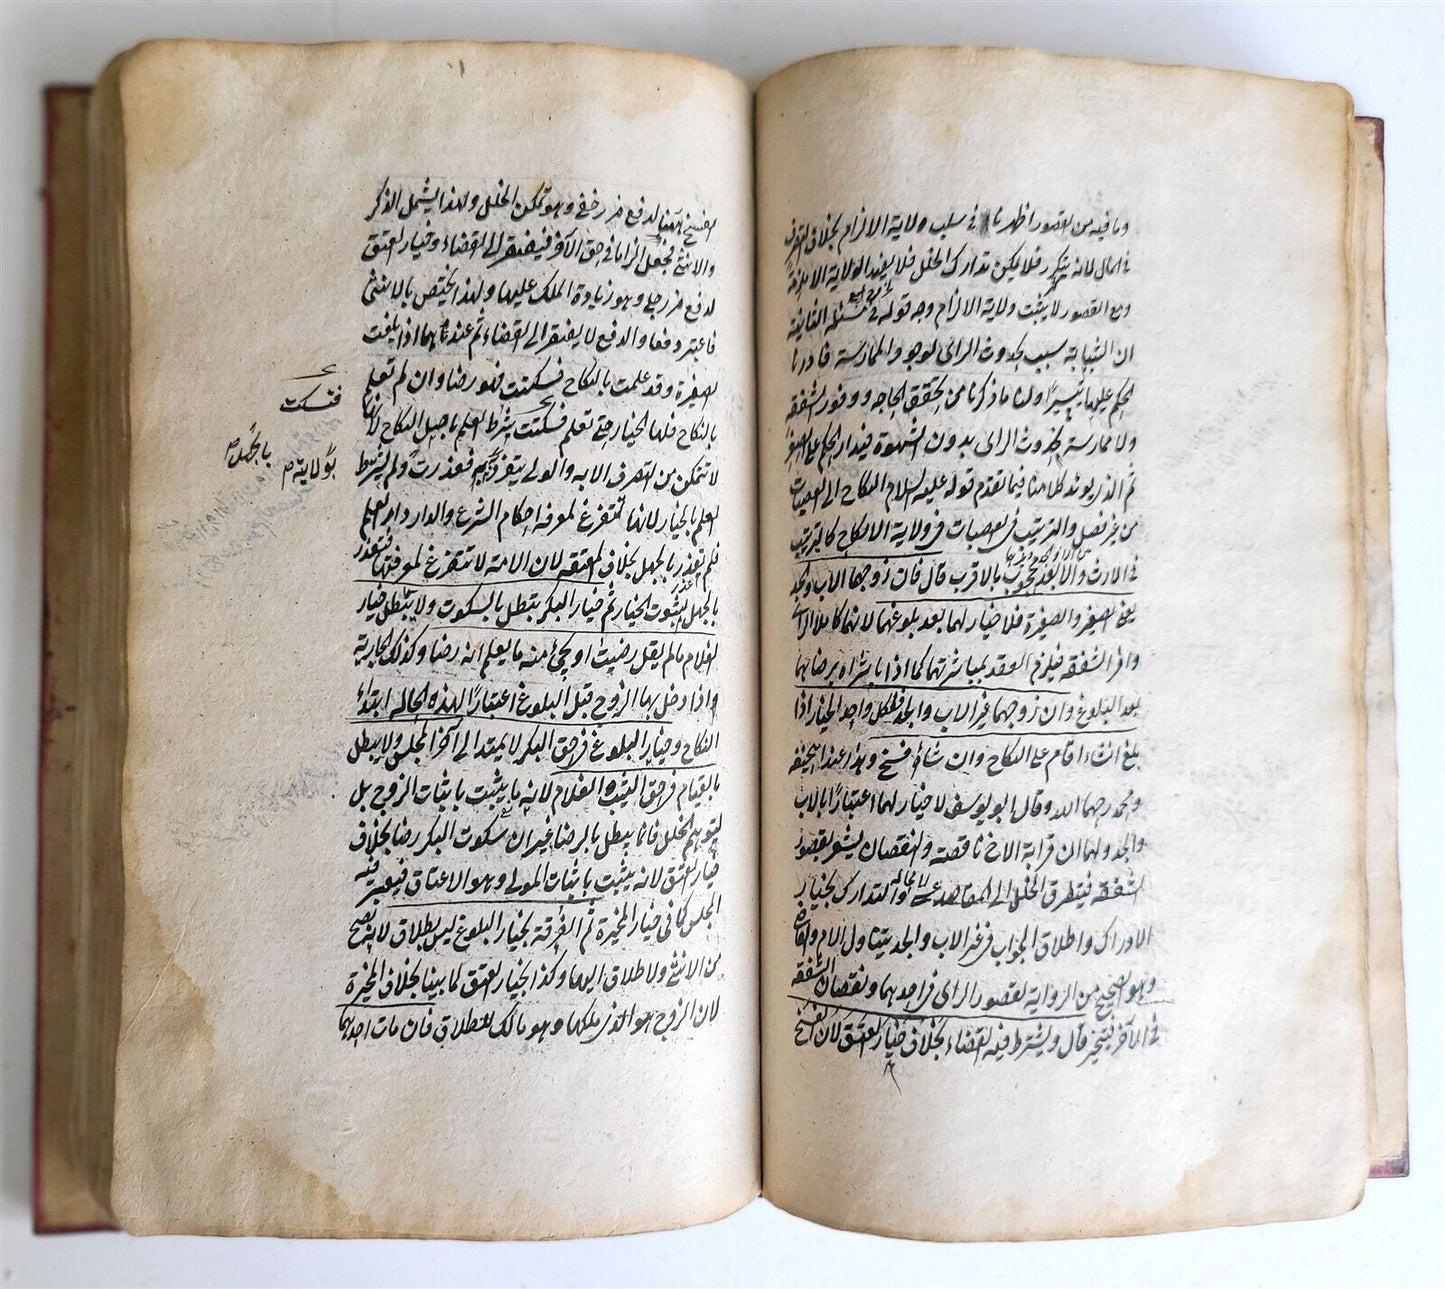 وما فيه من القصور اظهرنا في سلب ولاية الالزام بخلاف التصرف
في المال لانه يتكرر فلا يمكن تدارك الخلل فلا يفيد الولاية الا ملزمة
ومع القصور لا يثبت ولاية الالزام وجه قوله في المسئلة الثانية
ان الثيابة سبب لحدوث الراى لوجود الممارسة فادرنا
الحكم عليها تيسيرا ولنا ما ذكرنا من تحقق الحاجة ووفور الشفقة
ولا ممارسة تحدث الراى بدون الشهوة فيدار الحكم على الصغر
ثم الذى يؤيد كلامنا فيما تقدم قوله عليه السلام النكاح الى العصبات
من غير فصل والترتيب في العصبات في ولاية الانكاح كالترتيب
في الارث والابعد محجوب بالاقرب قال فان زوجها الاب والجد
يعنى الصغير والصغيرة فلا خيار لهما بعد بلوغهما لانهما كاملا الراى
وافرا الشفقة فيلزم العقد بمباشرتهما كما اذا باشراه برضاهما
بعد البلوغ وان زوجهما غير الاب والجد فلكل واحد الخيار اذا
بلغ ان شاء اقام على النكاح وان شاء فسخ وهذا عند ابى حنيفة
ومحمد رحمهما الله وقال ابو يوسف لا خيار لهما اعتبارًا بالاب
والجد ولهما ان قرابة الاخ ناقصة والنقصان يشعر بقصور
الشفقة فيتطرق الخلل الى المقاصد عسى والتدارك بخيار
الادراك واطلاق الجواب في غير الاب والجد يتناول الام والقاضى
وهو الصحيح من الرواية لقصور الراى في احدهما ونقصان الشفقة
في الآخر فيتخير قال ويشترط فيه القضاء بخلاف خيار العتق لان الفسخ
الفسخ ههنا لدفع ضرر خفى وهو تمكن الخلل ولهذا يشمل الذكر
والانثى فجعل الزاما في حق الآخر فيفتقر الى القضاء وخيار العتق
لدفع ضرر جلى وهو زيادة الملك عليها ولهذا يختص بالانثى
فاعتبر دفعا والدفع لا يفتقر الى القضاء ثم عندهما اذا بلغت
الصغيرة وقد علمت بالنكاح فسكتت فهو رضا وان لم تعلم
بالنكاح فلها الخيار حتى تعلم فسكتت شرط العلم باصل النكاح لانها
لا تتمكن من التصرف الا به والولى يتفرد به فعذرت ولم يشترط
العلم بالخيار لانها تتفرغ لمعرفة احكام الشرع والدار دار العلم
فلم تعذر بالجهل بخلاف المعتقة لان الامة لا تتفرغ لمعرفتها فتعذر
بالجهل بثبوت الخيار ثم خيار البكر يبطل بالسكوت ولا يبطل خيار
الغلام ما لم يقل رضيت او يجئ منه ما يعلم انه رضا وكذلك الجارية
واذا دخل بها الزوج قبل البلوغ اعتبارًا لهذه الحالة ابتداء
النكاح وخيار البلوغ في حق البكر لا يمتد الى آخر المجلس ولا يبطل
بالقيام في حق الثيب والغلام لانه ما يثبت باثبات الزوج بل
لتوهم الخلل فانما يبطل بالرضا غير ان سكوت البكر رضا بخلاف
خيار العتق لانه يثبت باثبات المولى وهو الاعتاق فيعتبر فيه
المجلس كما في خيار المخيرة ثم الفرقة بخيار البلوغ ليس بطلاق لانه يصح
من الانثى ولا طلاق اليها وكذا بخيار العتق لما بينا بخلاف المخيرة
لان الزوج هو الذى ملكها وهو مالك للطلاق فان مات احدهما
فسكت
بالجهل
بولاية